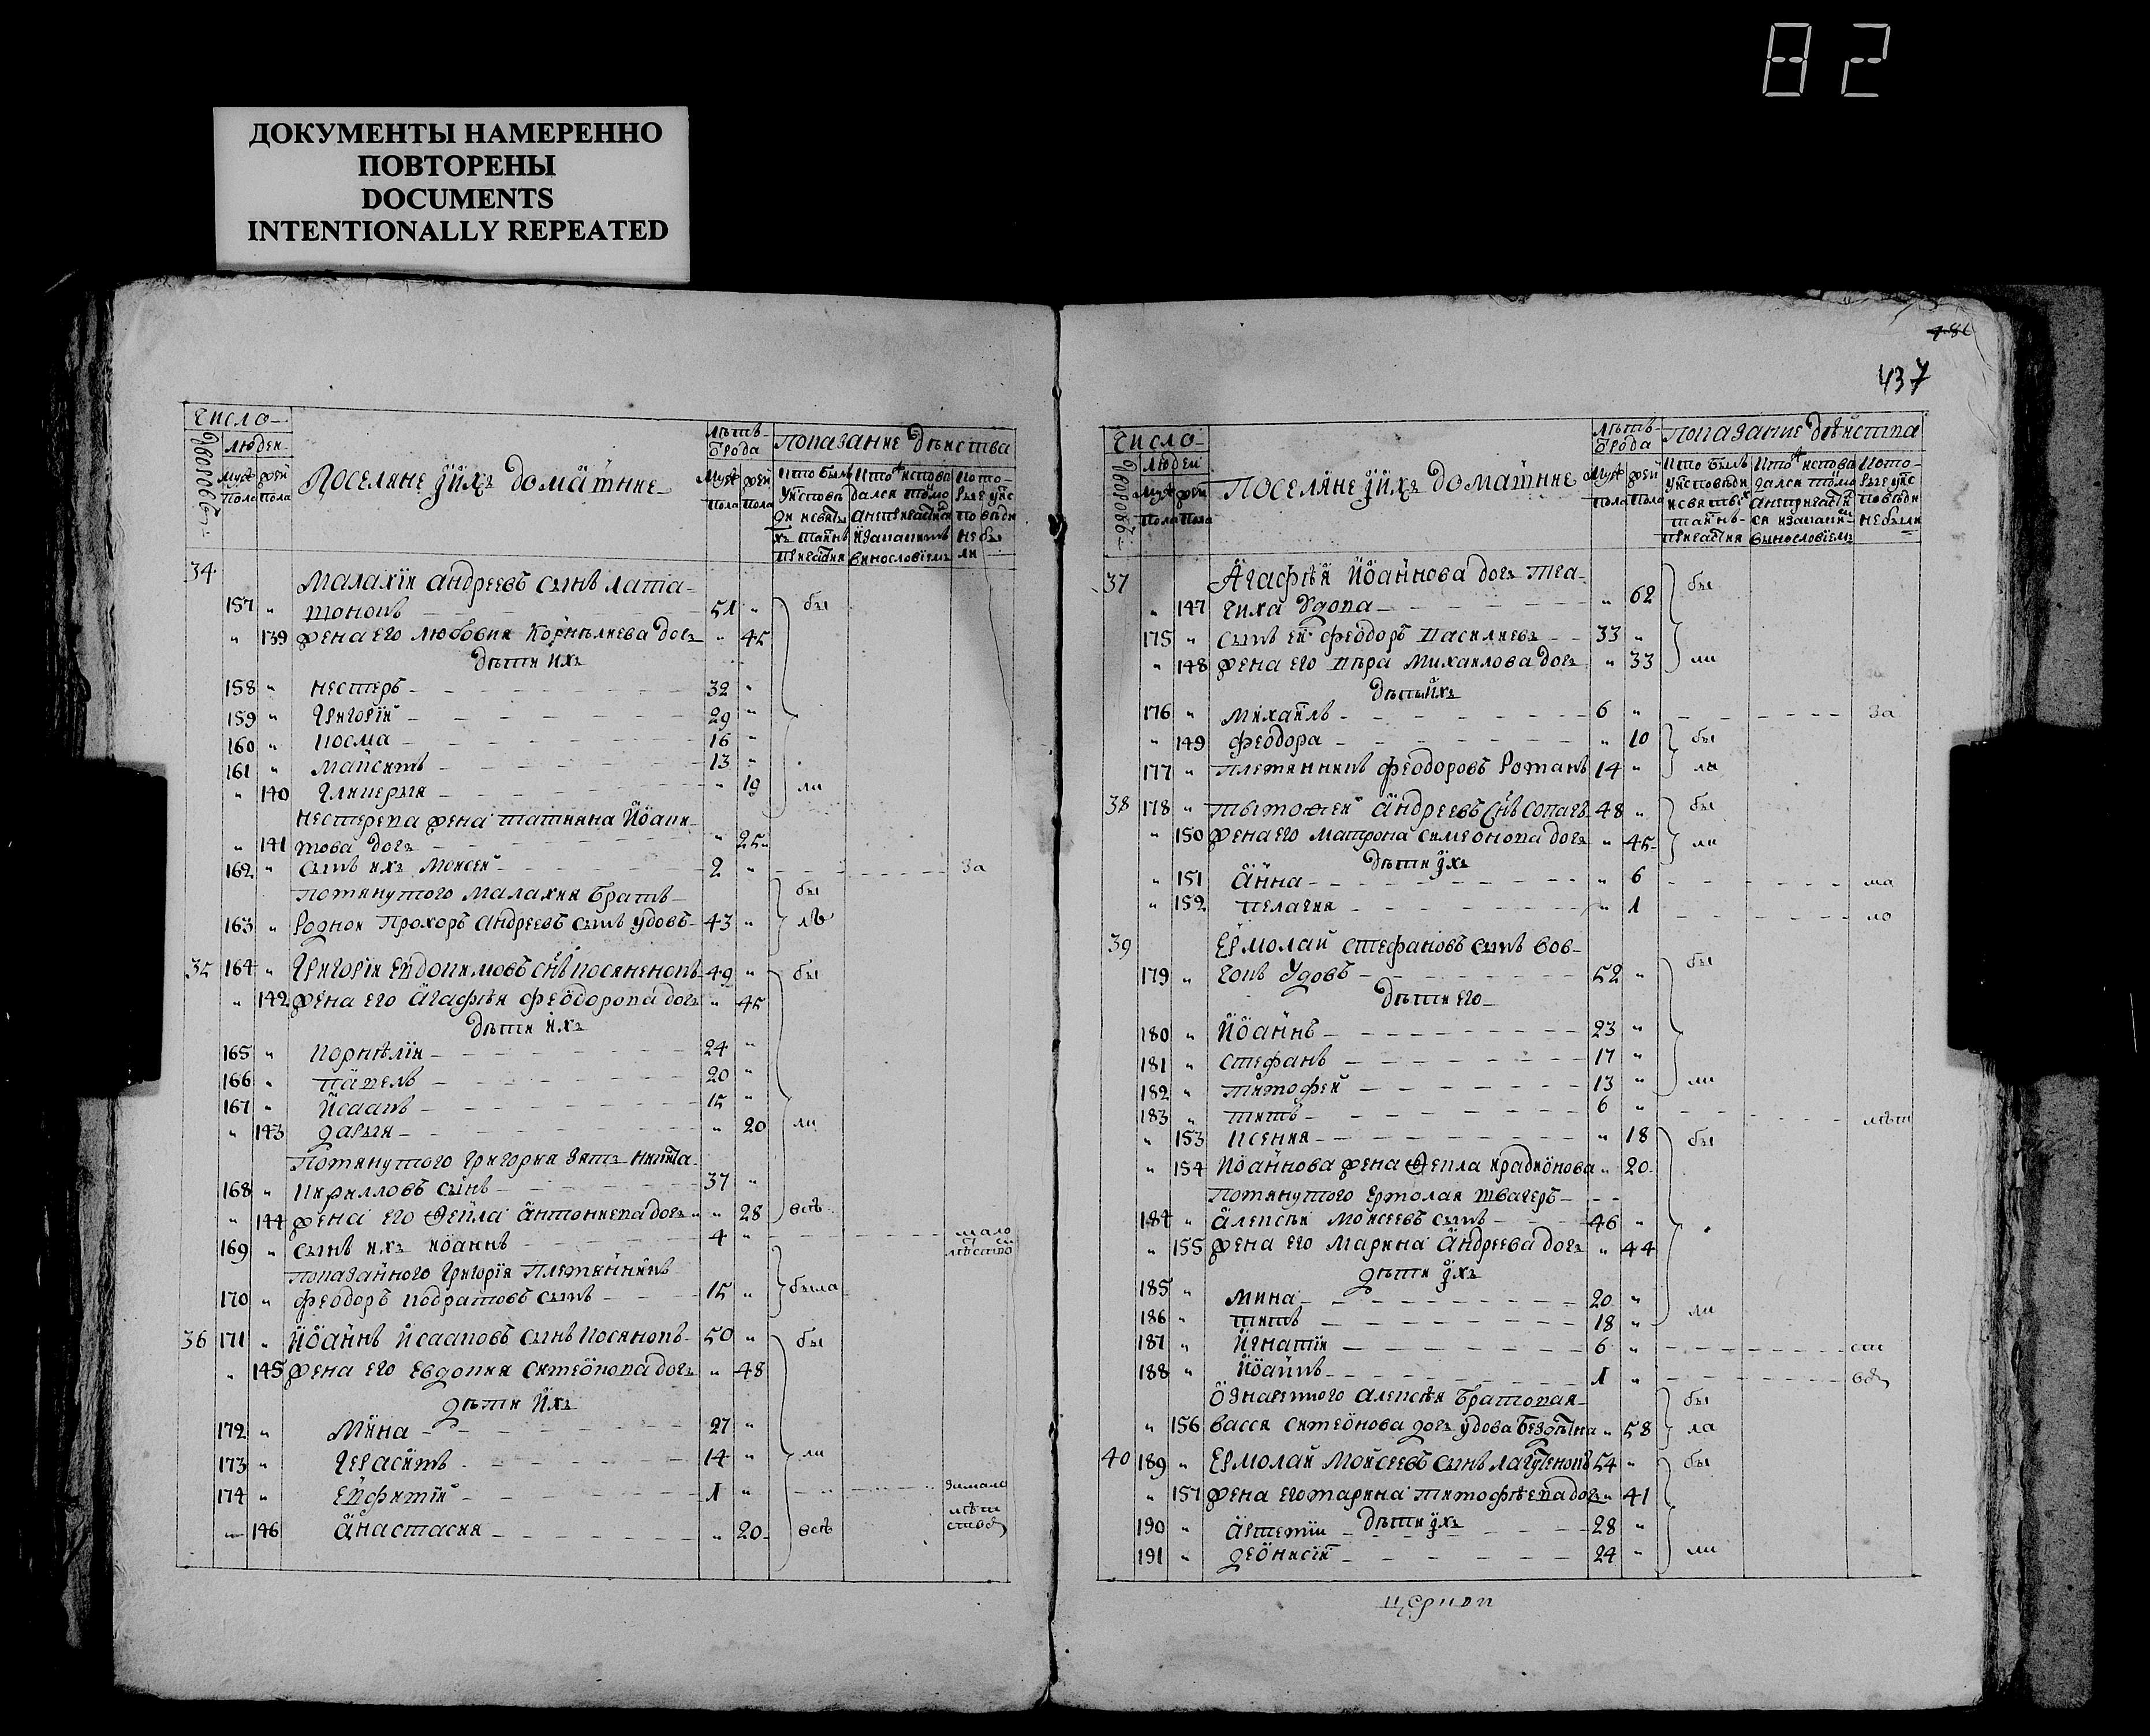 82
ДОКУМЕНТЫ НАМЕРЕННО
ПОВТОРЕНЫ
DOCUMENTS
INTENTIONALLY REPEATED
число
дворовъ
людей
Муж пола
жен пола
Поселяне и ихъ домашние
лѣтъ
ѿ рода
Муж пола
жен пола
показание дѣйства
34
Малахіи андреевъ сынъ лата-
157 " 51 "
" 139 жена его любовия Корнѣлиева дочь " 45
дѣти ихъ
158 " нестеръ 32 "
159 " Григоріи 29 "
160 " косма 16 "
161 " Маѯимъ 13 "
" 140 Гликерия " 19
нестерева жена татиана Иоаки-
" 141 мова дочь " 25
162 " сынъ ихъ Моисеи 2 " за
помянутого малахия братъ
163 " родной Прохоръ андреевъ сынъ удовъ 43 "
35 164 " Григоріи Евдокимовъ снъ косяненокъ 49 "
" 142 жена его агафѣя феодорова дочь " 45
дѣти ихъ
165 " корнѣліи 24 "
166 " павелъ 20 "
167 " Исаакъ 15 "
" 143 дария " 20
помянутого григория зять никита
168 " кирилловъ сынъ 37 "
" 144 жена его Ѳекла антониева дочь " 28
169 " сынъ ихъ иоаннъ 4 " мало
показанного григорія племянникъ
170 " феодоръ кодратовъ сынъ 15 " была
36 171 " Иоаннъ Исааковъ сынъ косянокъ 50 " бы
" 145 жена его евдокия симеонова дочь " 48
дѣти ихъ
172 " Мина 27 "
173 " Герасимъ 14 " ли
174 " Евфимии 1 "
" 146 анастасия " 20
437
число
дворовъ
людей
Муж пола
жен пола
Поселяне и ихъ домашние
лѣтъ
ѿ рода
Муж пола
жен пола
показание дѣйства
37
Агафѣя Иоаннова дочь тка-
" 147 чиха удова " 62
175 " сынъ ея феодоръ василиевъ 33 "
" 148 жена его вѣра михаилова дочь " 33 ли
дѣти ихъ
176 " Михаилъ 6 " за
" 149 феодора " 10 бы
177 " племянникъ феодоровъ романъ 14 " ли
38 178 " тимофеи андреевъ снъ сопачъ 48 " бы
" 150 жена его матрона симеонова дочь " 45 ли
дѣти ихъ
" 151 анна " 6 ма
" 152 пелагия " 1 ло
39
Ермолаи стефановъ сынъ вов-
179 " чокъ удовъ 52 " бы
дѣти его
180 " Иоаннъ 23 "
181 " стефанъ 17 "
182 " тимофеи 13 " ли
183 " титъ 6 " лѣт
" 153 ксения " 18 бы
" 154 Иоаннова жена Ѳекла ирадионова " 20
помянутого ермолая швагеръ
184 " алексѣи моисеевъ сынъ 46 "
" 155 жена его марина андреева дочь " 44
дѣти ихъ
185 " мина 20 "
186 " титъ 18 " ли
187 " Игнатіи 6 "
188 " Иоаннъ 1 "
означенного алексѣя братовая
" 156 васса симеонова дочь удова бездѣтна " 58 ла
40 189 " Ермолаи Моисеевъ сынъ 54 " бы
" 157 жена его марина тимофѣева дочь " 41
дѣти ихъ
190 " артемии 28 "
191 " деонисіи 24 " ли
церкви